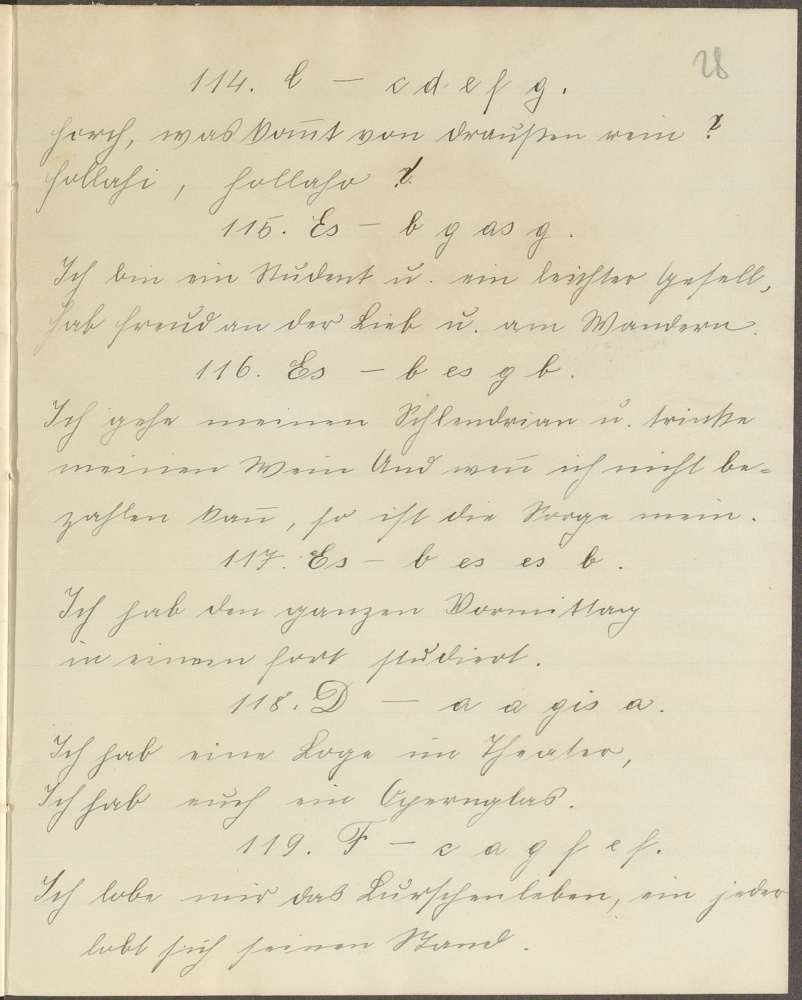 28
114. C — c d e f g.
Horch, was kom̅t von draußen rein?
Hollahi, hollaho!
115. Es — b g as g.
Ich bin ein Student u. ein leichter Gesell,
Hab Freud an der Lieb u. am Wandern.
116. Es — b es g b.
Ich gehe meinen Schlendrian u. trinke
meinen Wein Und wen̅ ich nicht be=
zahlen kan̅, so ist die Sorge mein.
117. Es — b es es b.
Ich hab den ganzen Vormittag
in einem fort studiert.
118. D — a a gis a.
Ich hab eine Loge im Theater,
Ich hab auch ein Opernglas.
119. F — c a g f e f.
Ich lobe mir das Burschenleben, ein jeder
lobt sich seinen Stand.